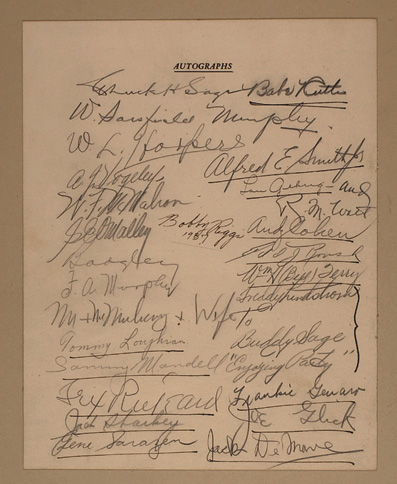 AUTOGRAPHS
Chuck H Sage Babe Ruth
W. Sarsfield Murphy.
W. L. Hoopers
Alfred E Smith Jr
A. J. Vogeley
Lou Gehrig and
W. F. McMahon
R. M.
J. E. O'Malley
Bobby Riggs
Andy Cohen
Wm H (Bill) Terry
F. A. Murphy
Freddy Lindstrom
Mr + Mrs + Wife
To
Buddy Sage
Tommy Loughran
Sammy Mandell
"Enjoying Party"
Tex Rickard
Frankie Genaro
Jack Sharkey
Joe Glick
Gene Sarazen
Jack De Mave